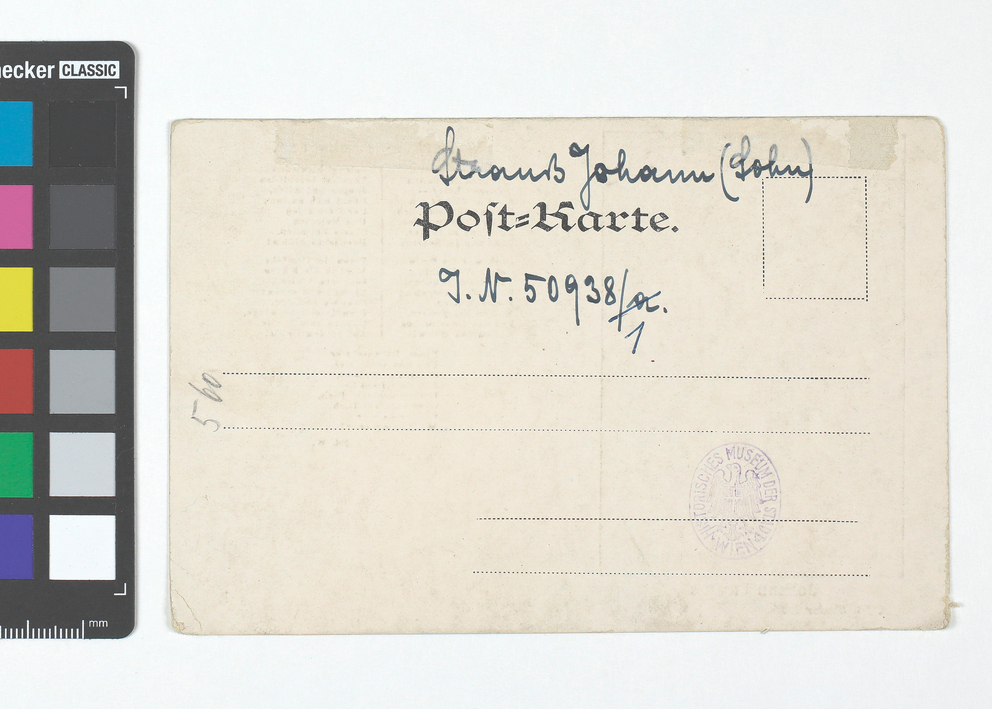 ecker CLASSIC
Strauß Johann (Sohn)
Post=Karte.
J. N. 50938/α.
1
560
HISTORISCHES MUSEUM DER STADT WIEN
mm